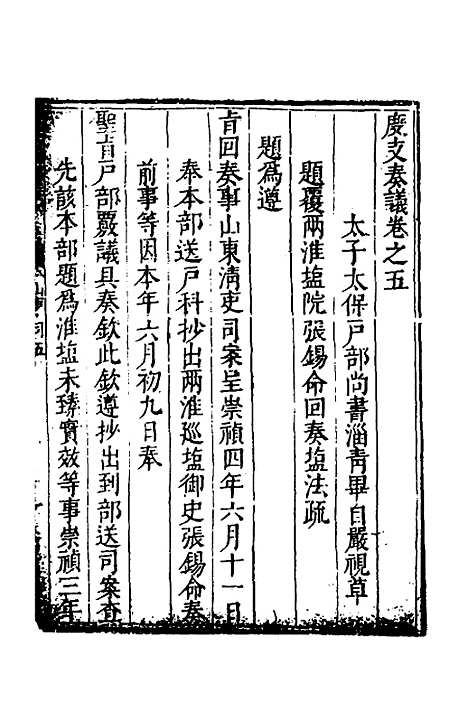 度支奏議卷之五
太子太保戶部尚書淄青畢自嚴視草
題覆兩淮塩院張錫命回奏塩法疏
題爲遵
旨回奏事山東清吏司案呈崇禎四年六月十一日
奉本部送戶科抄出兩淮廵塩御史張錫命奏
前事等因本年六月初九日奉
聖旨戶部覈議具奏欽此欽遵抄出到部送司案查
先該本部題爲淮塩未臻實效等事崇禎三年